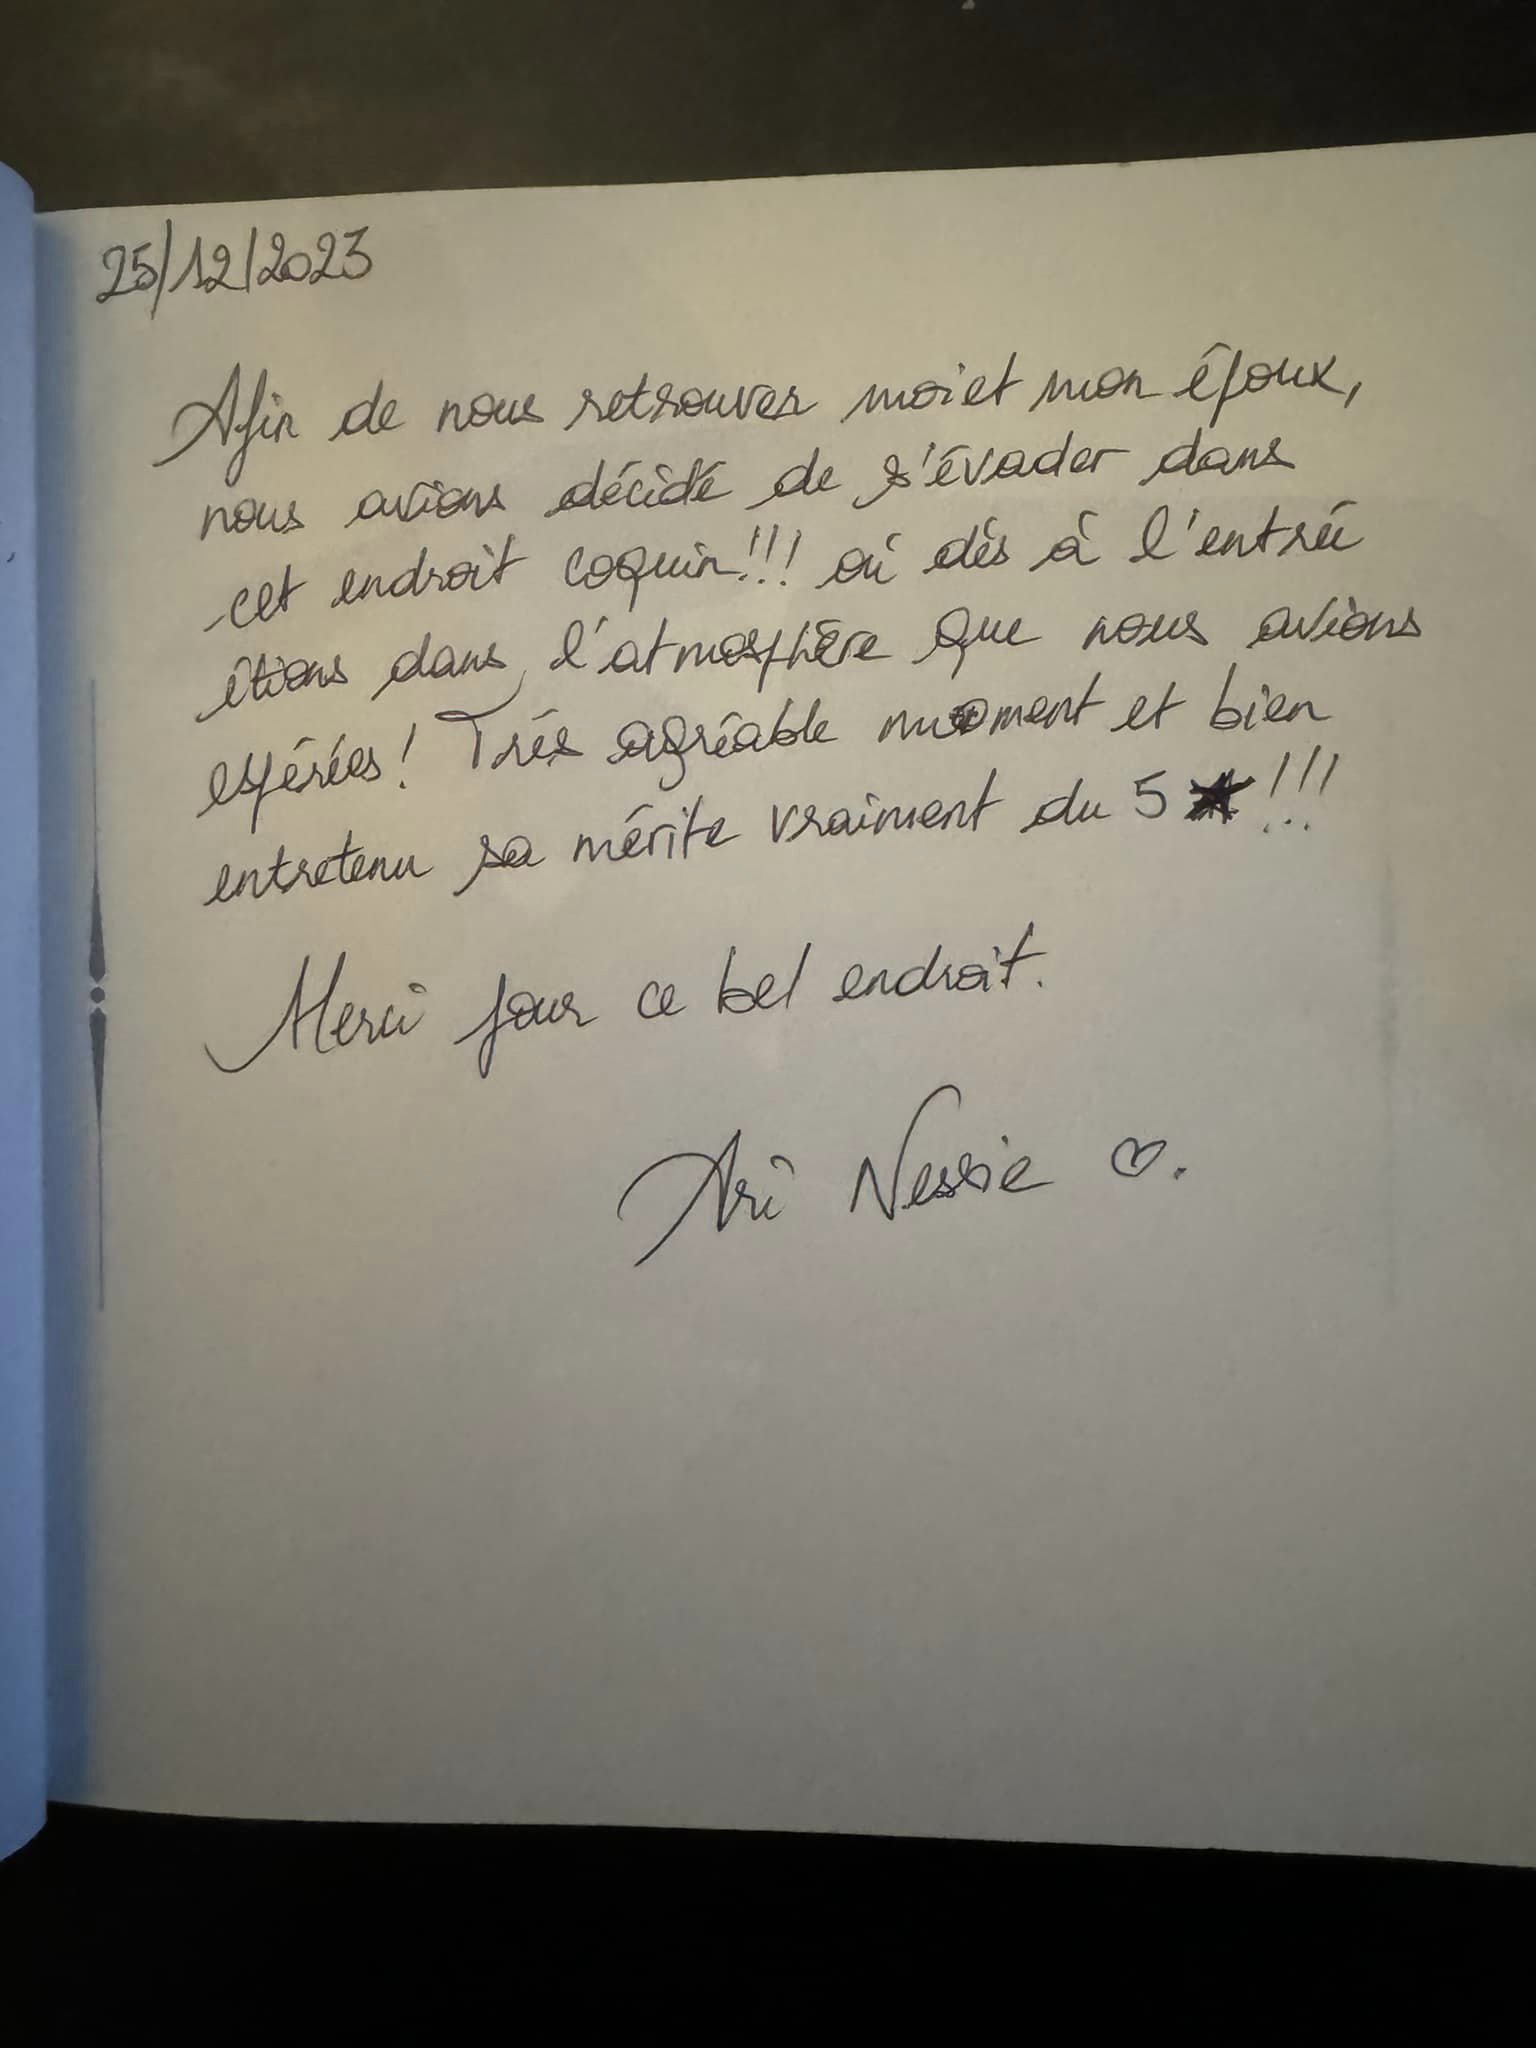 25/12/2023
Afin de nous retrouver moi et mon époux,
nous avions décidé de s'évader dans
cet endroit coquin!!! où dés à l'entrée
étions dans l'atmosphère que nous avions
espérées! Trés agréable moment et bien
entretenu sa mérite vraiment du 5 ★!!!
Merci pour ce bel endroit.
Ari Nessie ♡.